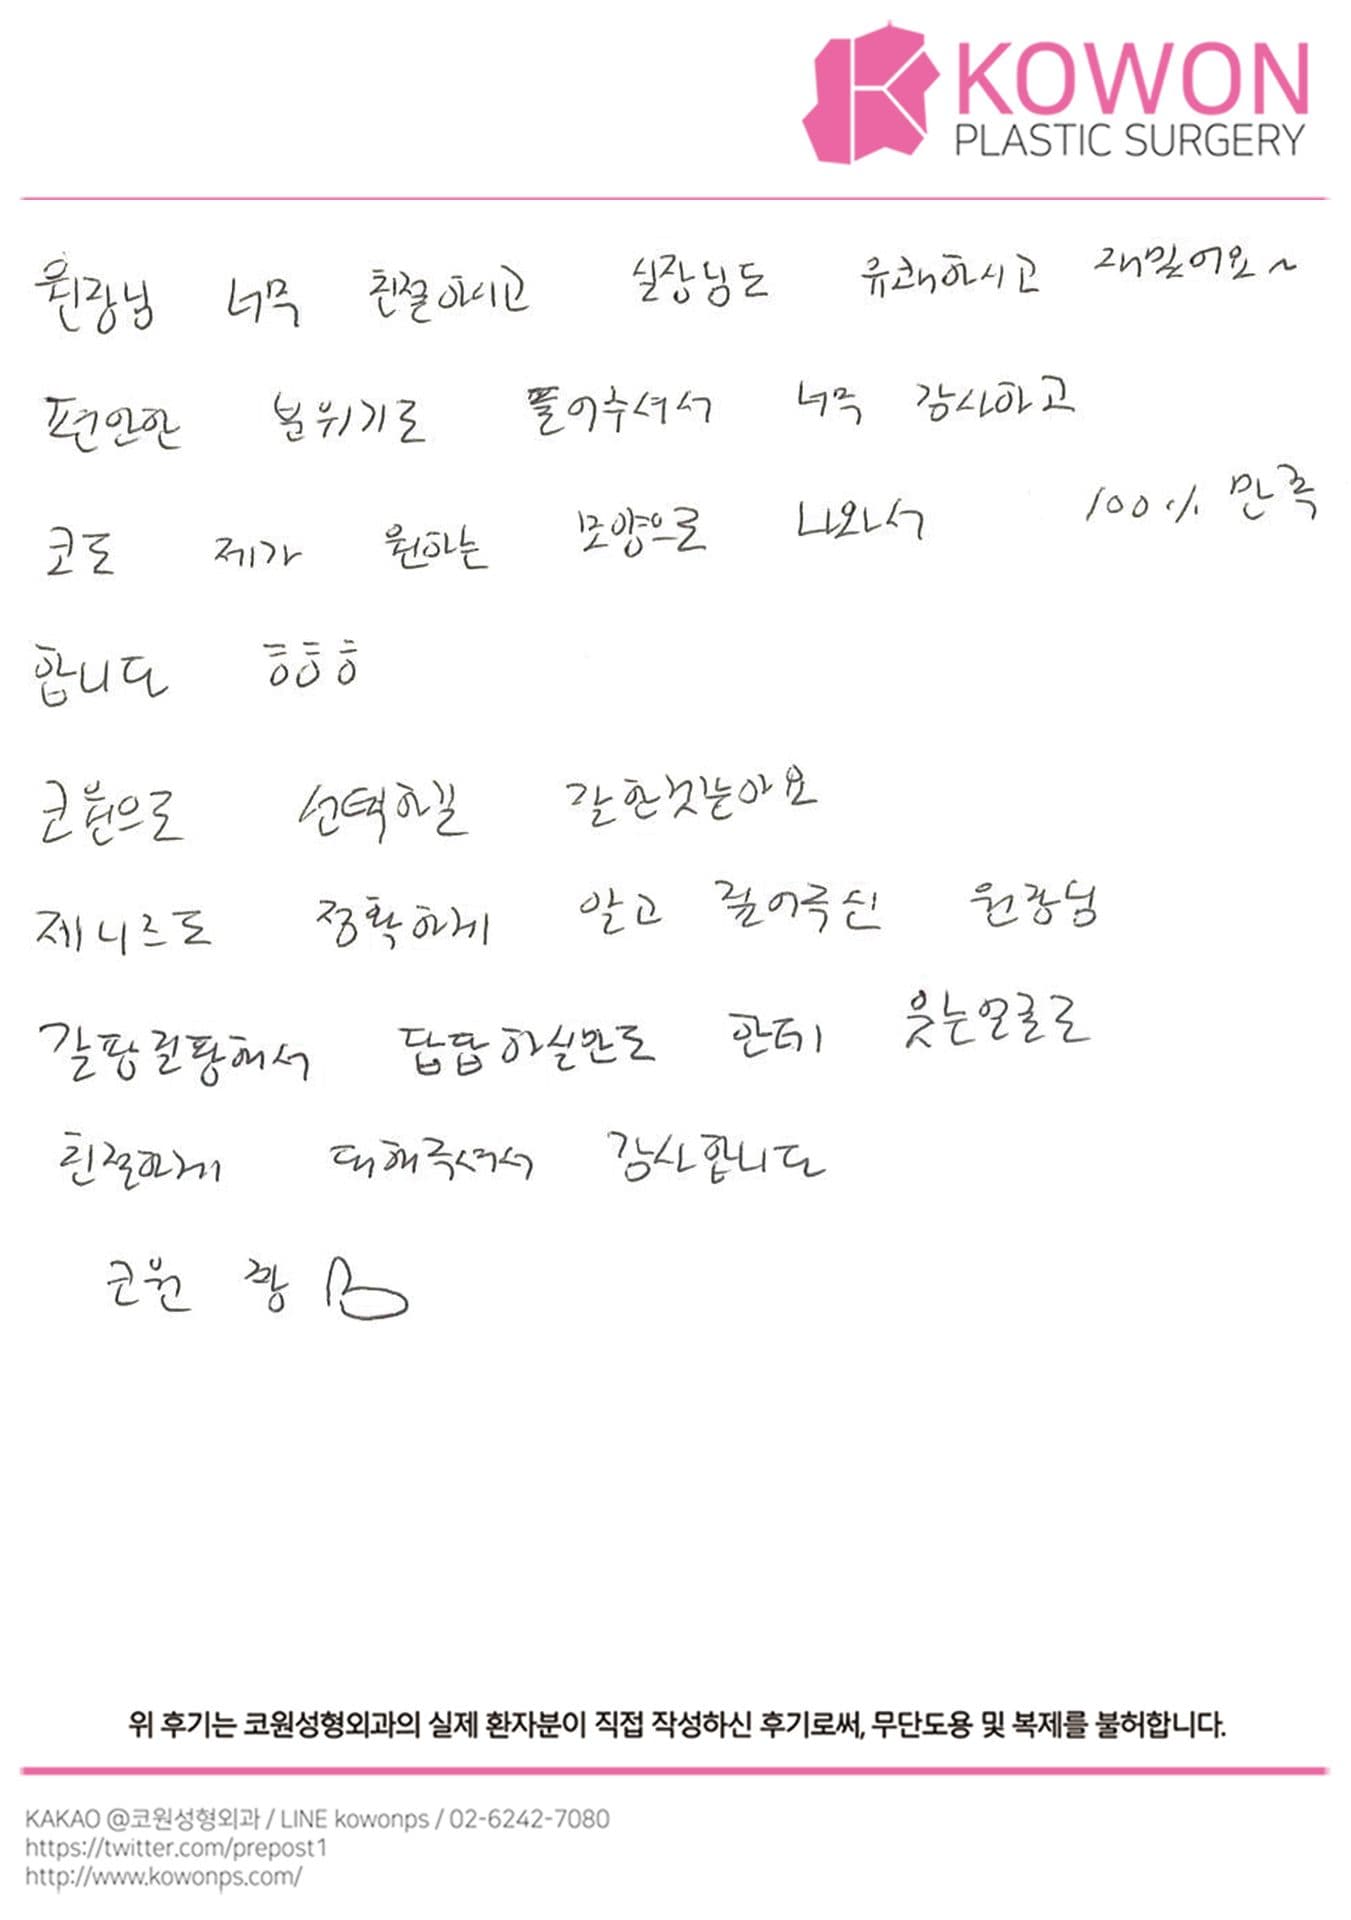 KOWON
PLASTIC SURGERY
원장님 너무 친절하시고 실장님도 유쾌하시고 재밌어요~
편안한 분위기로 풀어주셔서 너무 감사하고
코도 제가 원하는 모양으로 나와서 100% 만족
합니다 ㅎㅎㅎ
코원으로 선택하길 잘한것같아요
제 니즈도 정확하게 알고 짚어주신 원장님
갈팡질팡해서 답답하실만도 한데 웃는얼굴로
친절하게 대해주셔서 감사합니다
코원 짱
위 후기는 코원성형외과의 실제 환자분이 직접 작성하신 후기로써, 무단도용 및 복제를 불허합니다.
KAKAO @코원성형외과 / LINE kowonps / 02-6242-7080
https://twitter.com/prepost1
http://www.kowonps.com/